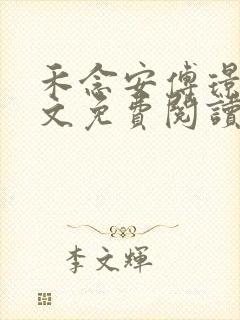 禾念安傅璟
文免費閱讀
李文輝